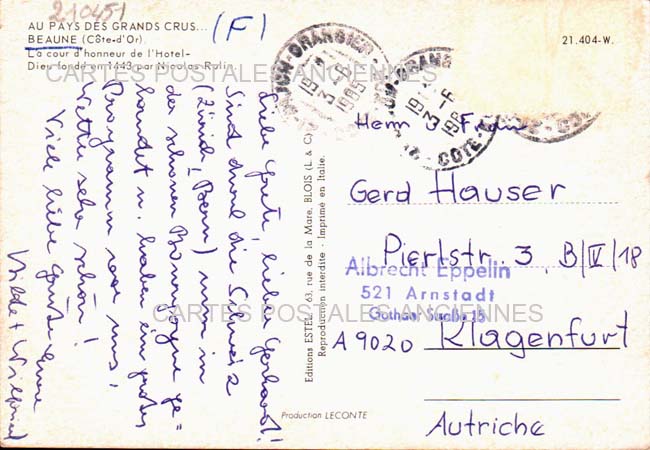 210451
(F)
AU PAYS DES GRANDS CRUS...
BEAUNE (Côte-d'Or)
La cour d'honneur de l'Hotel-
Dieu fondé en 1443 par Nicolas Rolin.
21.404-W.
CARTES POSTALES ANCIENNES
Liebe Grete, lieber Gerhard!
Sind durch die Schweiz
(Zürich, Bern) nun in
der schönen Bourgogne ge=
landet u. haben ein großes
Programm vor uns,
Wetter sehr schön!
Viele liebe Grüße
Hilde + Wilfried
Editions ESTEL, 63, rue de la Mare, BLOIS (L. & C.)
Reproduction interdite - Imprimé en Italie.
DIJON-GRANGIER
1985
COTE
Herrn u Frau
Gerd Hauser
Pierlstr. 3, B/IV/18
Albrecht Eppelin
521 Arnstadt
CARTES POSTALES ANCIENNES
A 9020 Klagenfurt
Autriche
Production LECONTE